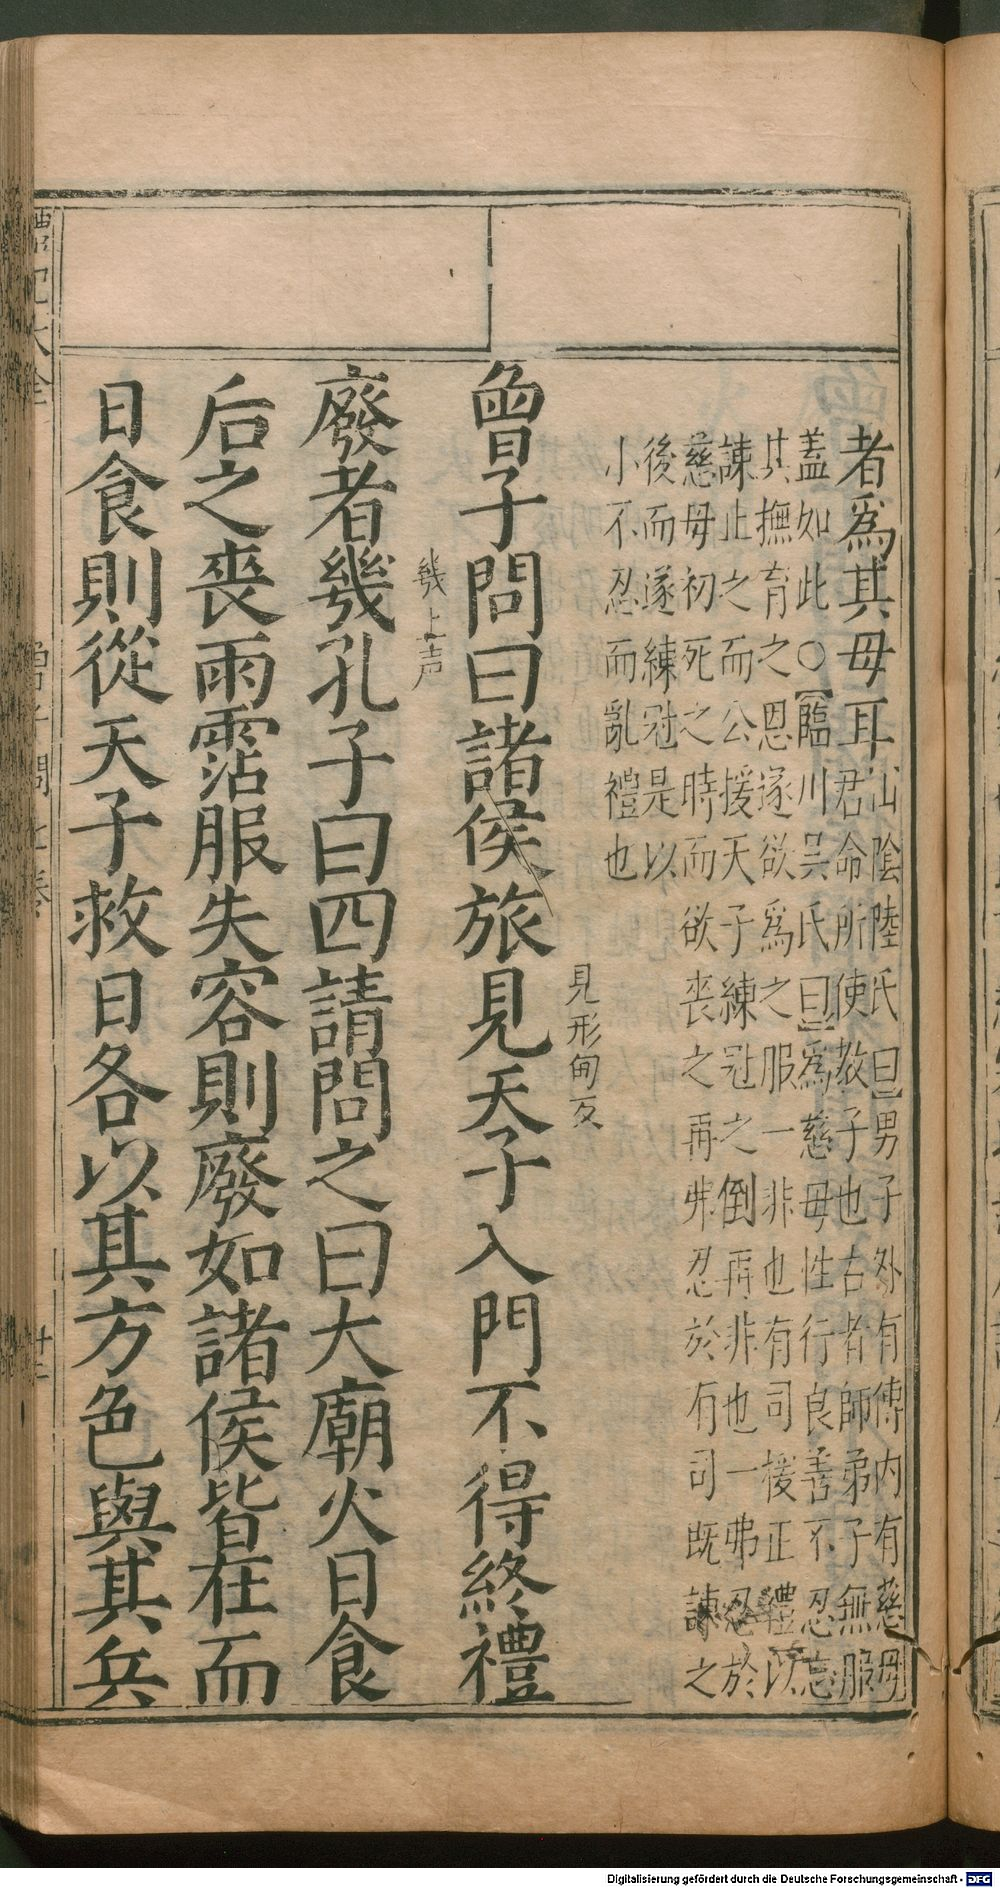 者爲其母耳
山陰陸氏曰男子外有傅内有慈母
君命所使教子也古者師弟子無服
蓋如此○臨川吴氏曰爲慈母性行良善不忍忘
其撫育之恩遂欲爲之服一非也有司援正禮以
諫止之而公援天子練冠之倒再非也一弗忍於
慈母初死之時而欲丧之再弗忍於有司既諫之
後而遂練冠是以
小不忍而亂禮也
見形甸反
曾子問曰諸侯旅見天子入門不得終禮
幾上声
廢者幾孔子曰四請問之曰大廟火日食
后之喪雨霑服失容則廢如諸侯皆在而
日食則從天子救日各以其方色與其兵
禮記大全
曾子問七卷
Digitalisierung gefördert durch die Deutsche Forschungsgemeinschaft - DFG